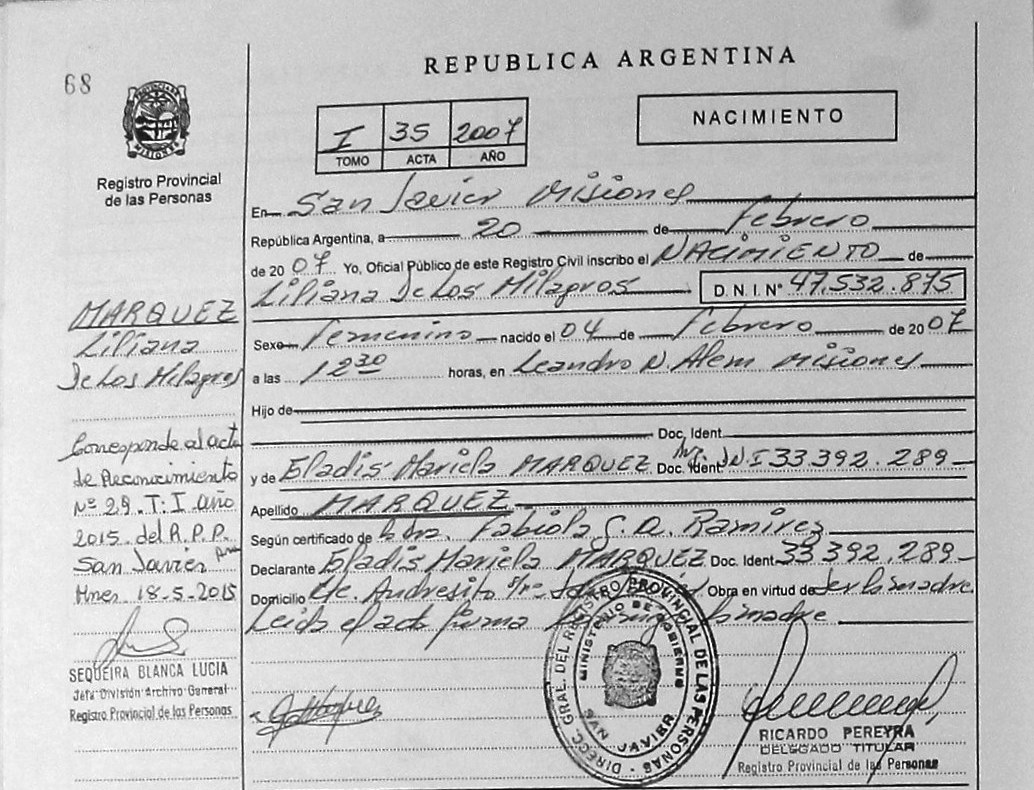 68
REPUBLICA ARGENTINA
I 35 2007
TOMO ACTA AÑO
NACIMIENTO
PROVINCIA DE MISIONES
Registro Provincial
de las Personas
MARQUEZ
Liliana
De Los Milagros
Corresponde al acta
de Reconocimiento
Nº 29. T: I año
2015. del R.P.P.
San Javier
Mnes. 18-5-2015
SEQUEIRA BLANCA LUCIA
Jefa División Archivo General
Registro Provincial de las Personas
En San Javier Misiones
República Argentina, a 20 de Febrero
de 2007 Yo, Oficial Público de este Registro Civil inscribo el NACIMIENTO de
Liliana De Los Milagros D.N.I. Nº 47.532.875
Sexo Femenino nacido el 04 de Febrero de 2007
a las 12 30 horas, en Leandro N. Alem Misiones
Hijo de
Doc. Ident.
y de Eladis Mariela MARQUEZ Doc. Ident. D.N.I 33.392.289
Apellido MARQUEZ
Según certificado de Fabiola Ramirez
Declarante Eladis Mariela MARQUEZ Doc. Ident 33.392.289
Domicilio Andresito Obra en virtud de ser la madre.
Leida el acta firma la madre
DIRECC. GRAL. DEL REGISTRO PROVINCIAL DE LAS PERSONAS
MINISTERIO DE GOBIERNO
SAN JAVIER
RICARDO PEREYRA
DELEGADO TITULAR
Registro Provincial de las Personas